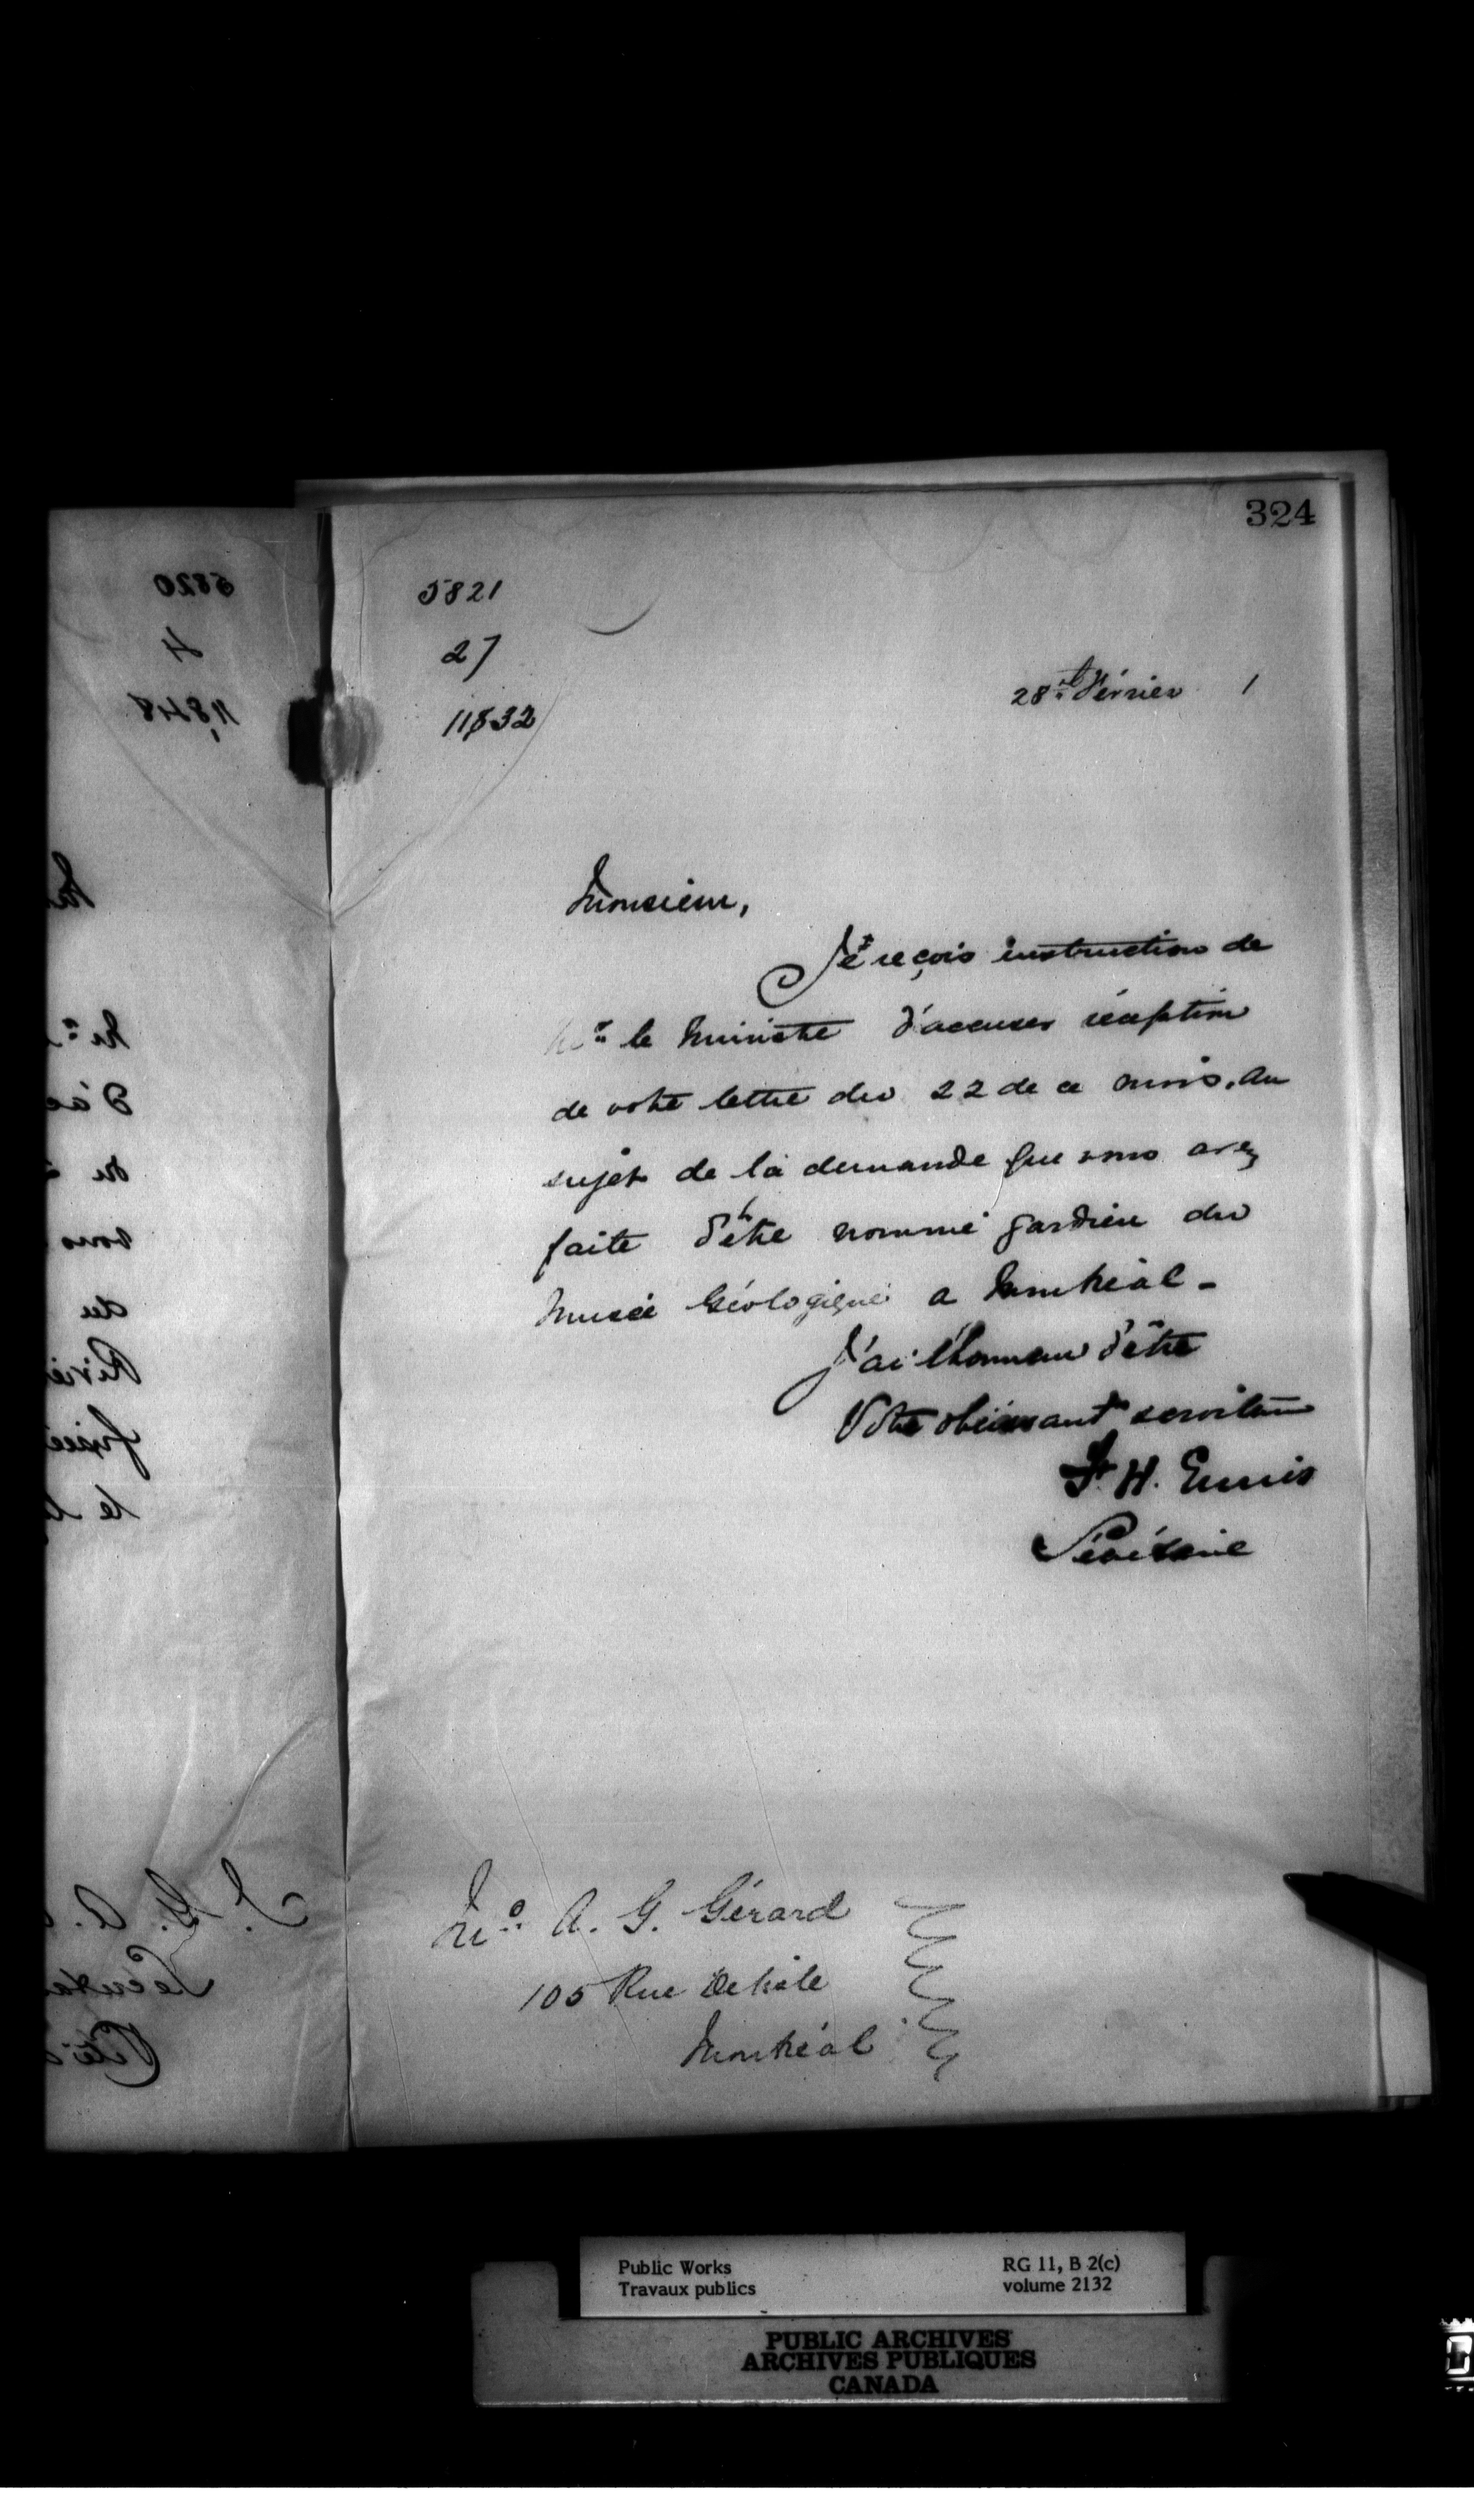 324
5821
27
11832
28 Février 1
Monsieur,
Je reçois instruction de
Mr le Ministre d'accuser réception
de votre lettre du 22 de ce mois, au
sujet de la demande que vous avez
faite d'être nommé gardien du
Musée Géologique a Montréal -
J'ai l'honneur d'être
Votre obéissant serviteur
F. H. Ennis
Secrétaire
Mr A. G. Gérard
105 Rue Delisle
Montréal
5820
4
11,848
Public Works
Travaux publics
RG 11, B 2(c)
volume 2132
PUBLIC ARCHIVES
ARCHIVES PUBLIQUES
CANADA